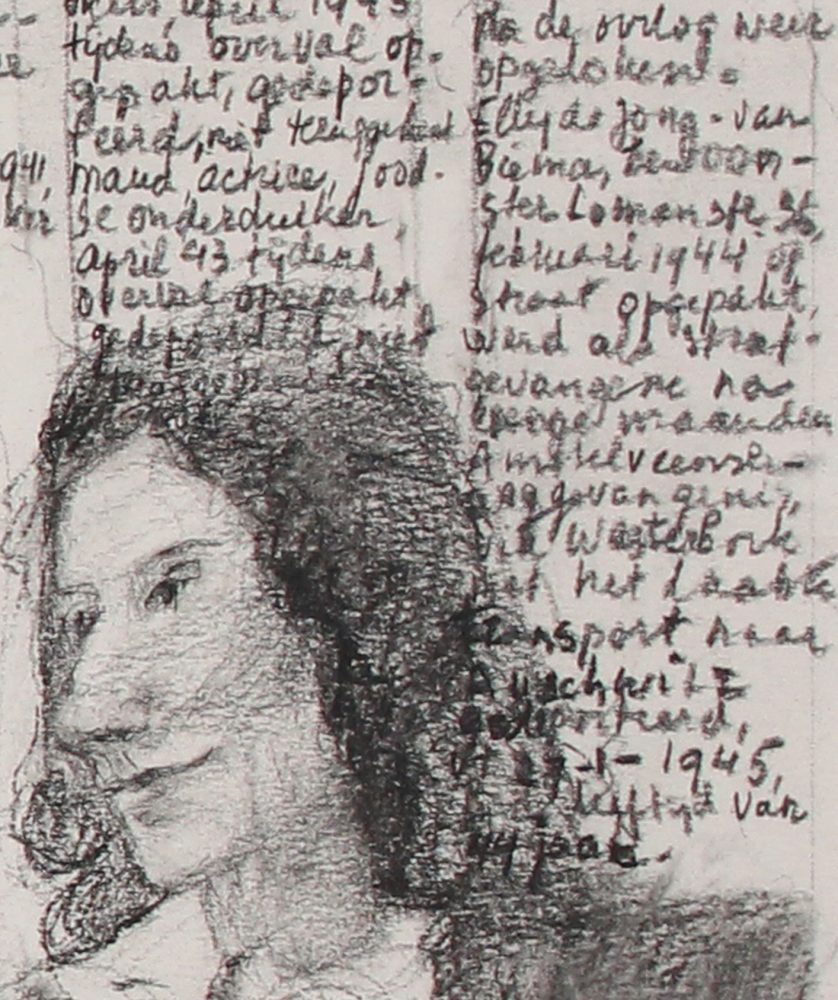 april 1943
tijdens overval op-
gepakt, gedepor-
teerd, niet teruggekeerd
Maud, actrice, Jood-
se onderduiker,
april 43 tijdens
overval opgepakt
niet
941,
na de oorlog weer
opgedoken.
Elly de Jong-van
Biema, bewoon-
ster Lomanstr. 35,
februari 1944 op
straat opgepakt,
werd als straf-
gevangene na
enige maanden
Amstelveense-
weg gevangenis,
via Westerbork
met het laatste
transport naar
Auschwitz
gedeporteerd,
1945,
leeftijd van
44 jaar.